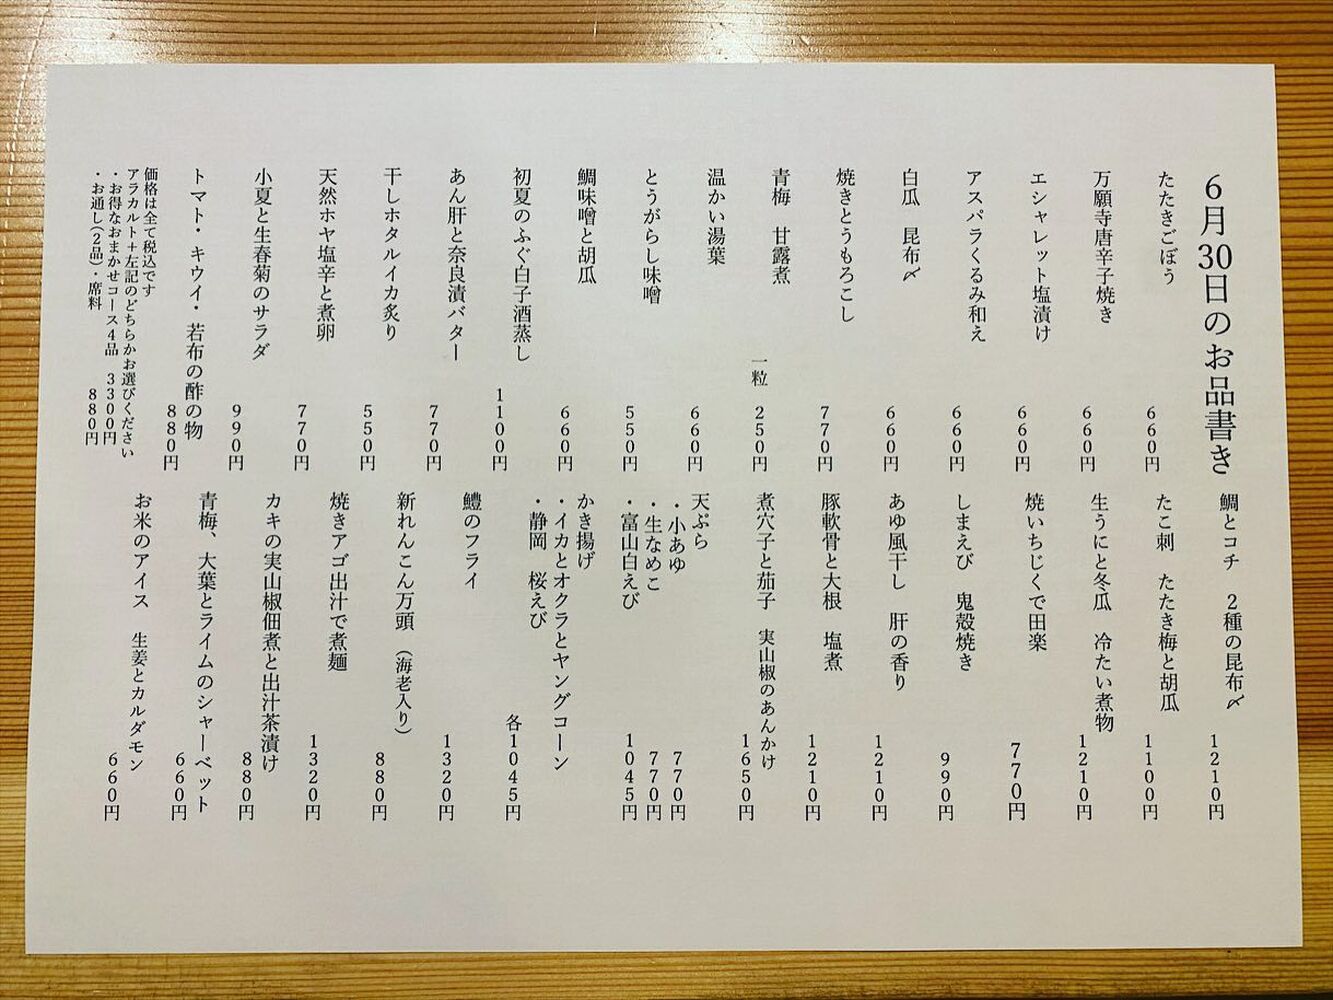 6月30日のお品書き
たたきごぼう 660円
万願寺唐辛子焼き 660円
エシャレット塩漬け 660円
アスパラくるみ和え 660円
白瓜 昆布〆 660円
焼きとうもろこし 770円
青梅 甘露煮 一粒 250円
温かい湯葉 660円
とうがらし味噌 550円
鯛味噌と胡瓜 660円
初夏のふぐ白子酒蒸し 1100円
あん肝と奈良漬バター 770円
干しホタルイカ炙り 550円
天然ホヤ塩辛と煮卵 770円
小夏と生春菊のサラダ 990円
トマト・キウイ・若布の酢の物 880円
価格は全て税込です
アラカルト+左記のどちらかお選びください
・お得なおまかせコース4品 3300円
・お通し(2品)・席料 880円
鯛とコチ 2種の昆布〆 1210円
たこ刺 たたき梅と胡瓜 1100円
生うにと冬瓜 冷たい煮物 1210円
焼いちじくで田楽 770円
しまえび 鬼殻焼き 990円
あゆ風干し 肝の香り 1210円
豚軟骨と大根 塩煮 1210円
煮穴子と茄子 実山椒のあんかけ 1650円
天ぷら
・小あゆ 770円
・生なめこ 770円
・富山白えび 1045円
かき揚げ
・イカとオクラとヤングコーン
・静岡 桜えび 各1045円
鱧のフライ 1320円
新れんこん万頭(海老入り) 880円
焼きアゴ出汁で煮麺 1320円
カキの実山椒佃煮と出汁茶漬け 880円
青梅、大葉とライムのシャーベット 660円
お米のアイス 生姜とカルダモン 660円